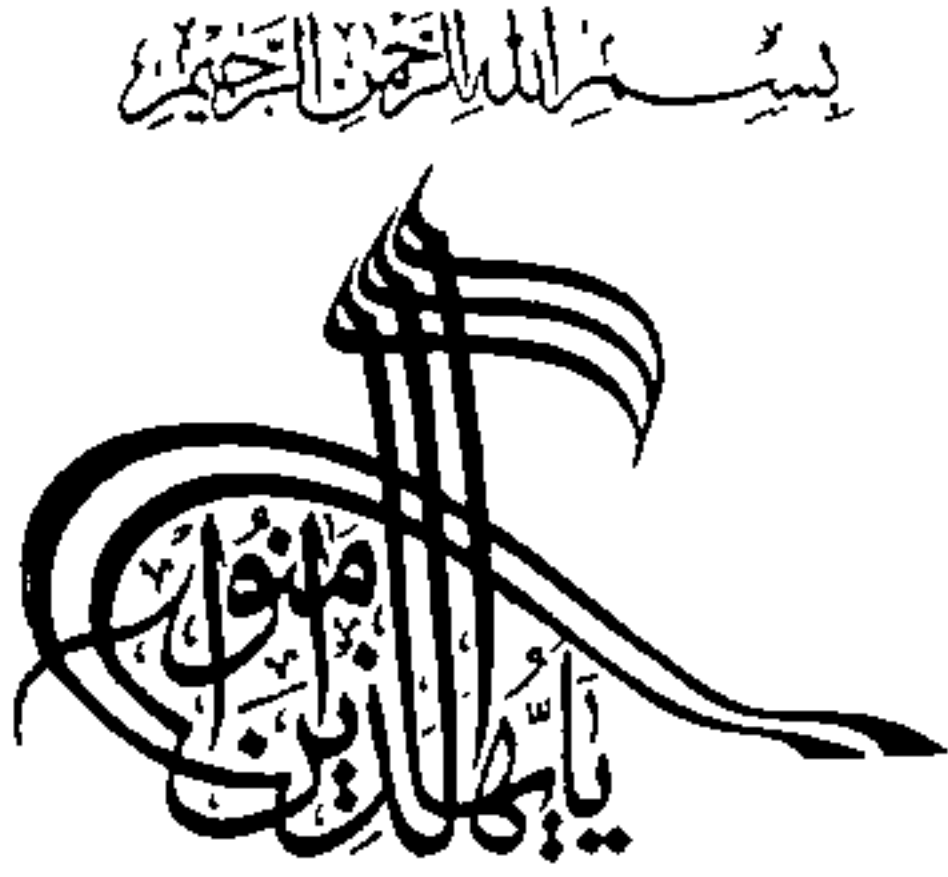 بِسْمِ اللهِ الرَّحْمٰنِ الرَّحِيْمِ
يَا أَيُّهَا الَّذِيْنَ آمَنُوْا